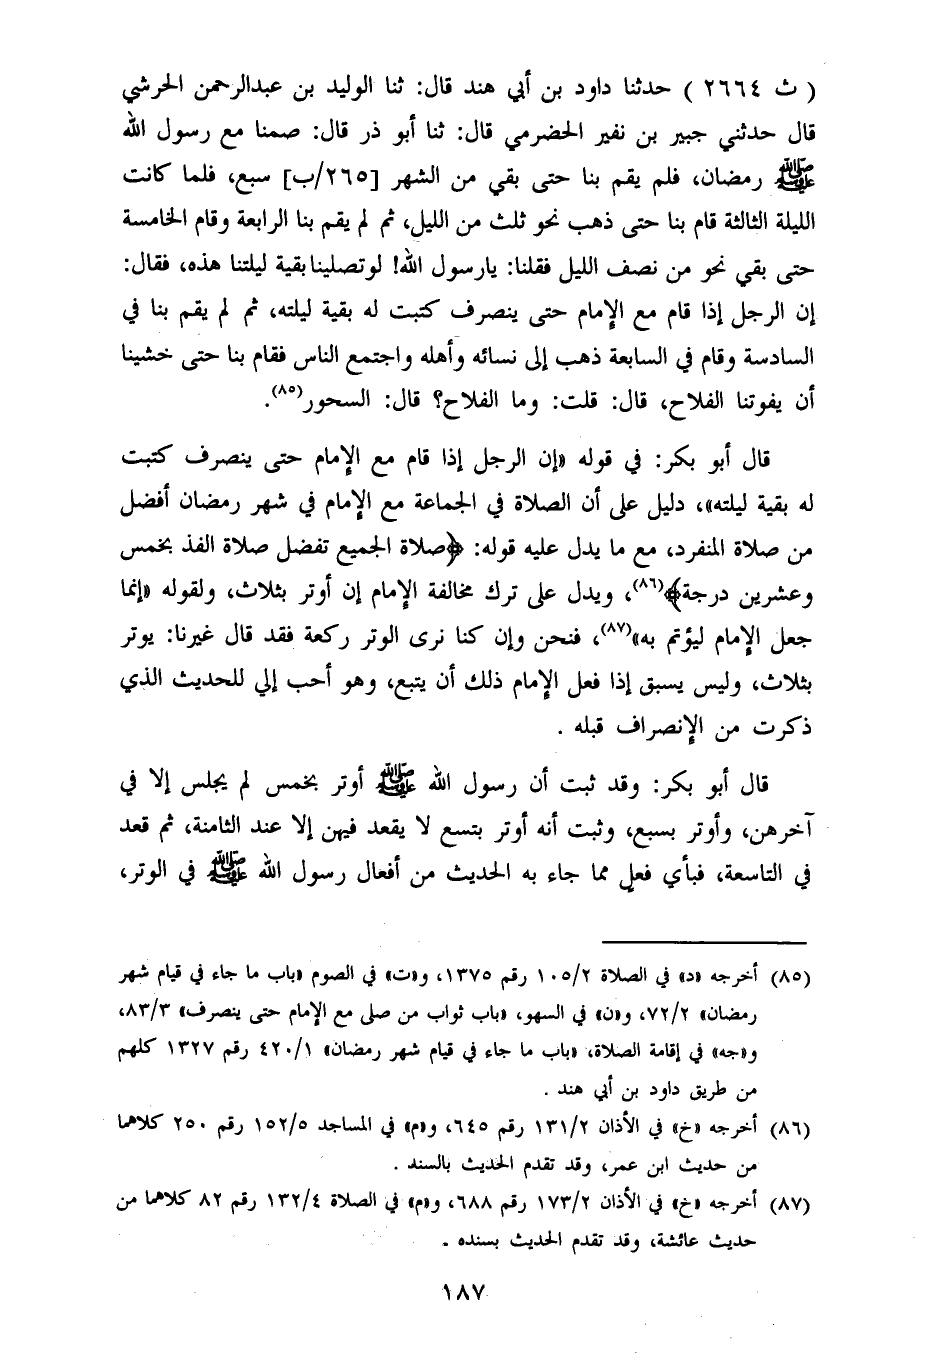 ( ث ٢٦٦٤ ) حدثنا داود بن أبي هند قال: ثنا الوليد بن عبدالرحمن الحرشي
قال حدثني جبير بن نفير الحضرمي قال: ثنا أبو ذر قال: صمنا مع رسول الله
ﷺ رمضان، فلم يقم بنا حتى بقي من الشهر [٢٦٥/ب] سبع، فلما كانت
الليلة الثالثة قام بنا حتى ذهب نحو ثلث من الليل، ثم لم يقم بنا الرابعة وقام الخامسة
حتى بقي نحو من نصف الليل فقلنا: يارسول الله! لوتصلينابقية ليلتنا هذه، فقال:
إن الرجل إذا قام مع الإمام حتى ينصرف كتبت له بقية ليلته، ثم لم يقم بنا في
السادسة وقام في السابعة ذهب إلى نسائه وأهله واجتمع الناس فقام بنا حتى خشينا
أن يفوتنا الفلاح، قال: قلت: وما الفلاح؟ قال: السحور(٨٥).
قال أبو بكر: في قوله «إن الرجل إذا قام مع الإمام حتى ينصرف كتبت
له بقية ليلته»، دليل على أن الصلاة في الجماعة مع الإمام في شهر رمضان أفضل
من صلاة المنفرد، مع ما يدل عليه قوله: ﴿صلاة الجميع تفضل صلاة الفذ بخمس
وعشرين درجة﴾(٨٦)، ويدل على ترك مخالفة الإمام إن أوتر بثلاث، ولقوله «إنما
جعل الإمام ليؤتم به»(٨٧)، فنحن وإن كنا نرى الوتر ركعة فقد قال غيرنا: يوتر
بثلاث، وليس يسبق إذا فعل الإمام ذلك أن يتبع، وهو أحب إلي للحديث الذي
ذكرت من الإنصراف قبله .
قال أبو بكر: وقد ثبت أن رسول الله ﷺ أوتر بخمس لم يجلس إلا في
آخرهن، وأوتر بسبع، وثبت أنه أوتر بتسع لا يقعد فيهن إلا عند الثامنة، ثم قعد
في التاسعة، فبأي فعلٍ مما جاء به الحديث من أفعال رسول الله ﷺ في الوتر،
(٨٥) أخرجه «د» في الصلاة ١٠٥/٢ رقم ١٣٧٥، و«ت» في الصوم «باب ما جاء في قيام شهر
رمضان» ٧٢/٢، و«ن» في السهو، «باب ثواب من صلى مع الإمام حتى ينصرف» ٨٣/٣،
و«جه» في إقامة الصلاة، «باب ما جاء في قيام شهر رمضان» ٤٢٠/١ رقم ١٣٢٧ كلهم
من طريق داود بن أبي هند .
(٨٦) أخرجه «خ» في الأذان ١٣١/٢ رقم ٦٤٥، و«م» في المساجد ١٥٢/٥ رقم ٢٥٠ كلاهما
من حديث ابن عمر، وقد تقدم الحديث بالسند .
(٨٧) أخرجه «خ» في الأذان ١٧٣/٢ رقم ٦٨٨، و«م» في الصلاة ١٣٢/٤ رقم ٨٢ كلاهما من
حديث عائشة، وقد تقدم الحديث بسنده .
١٨٧